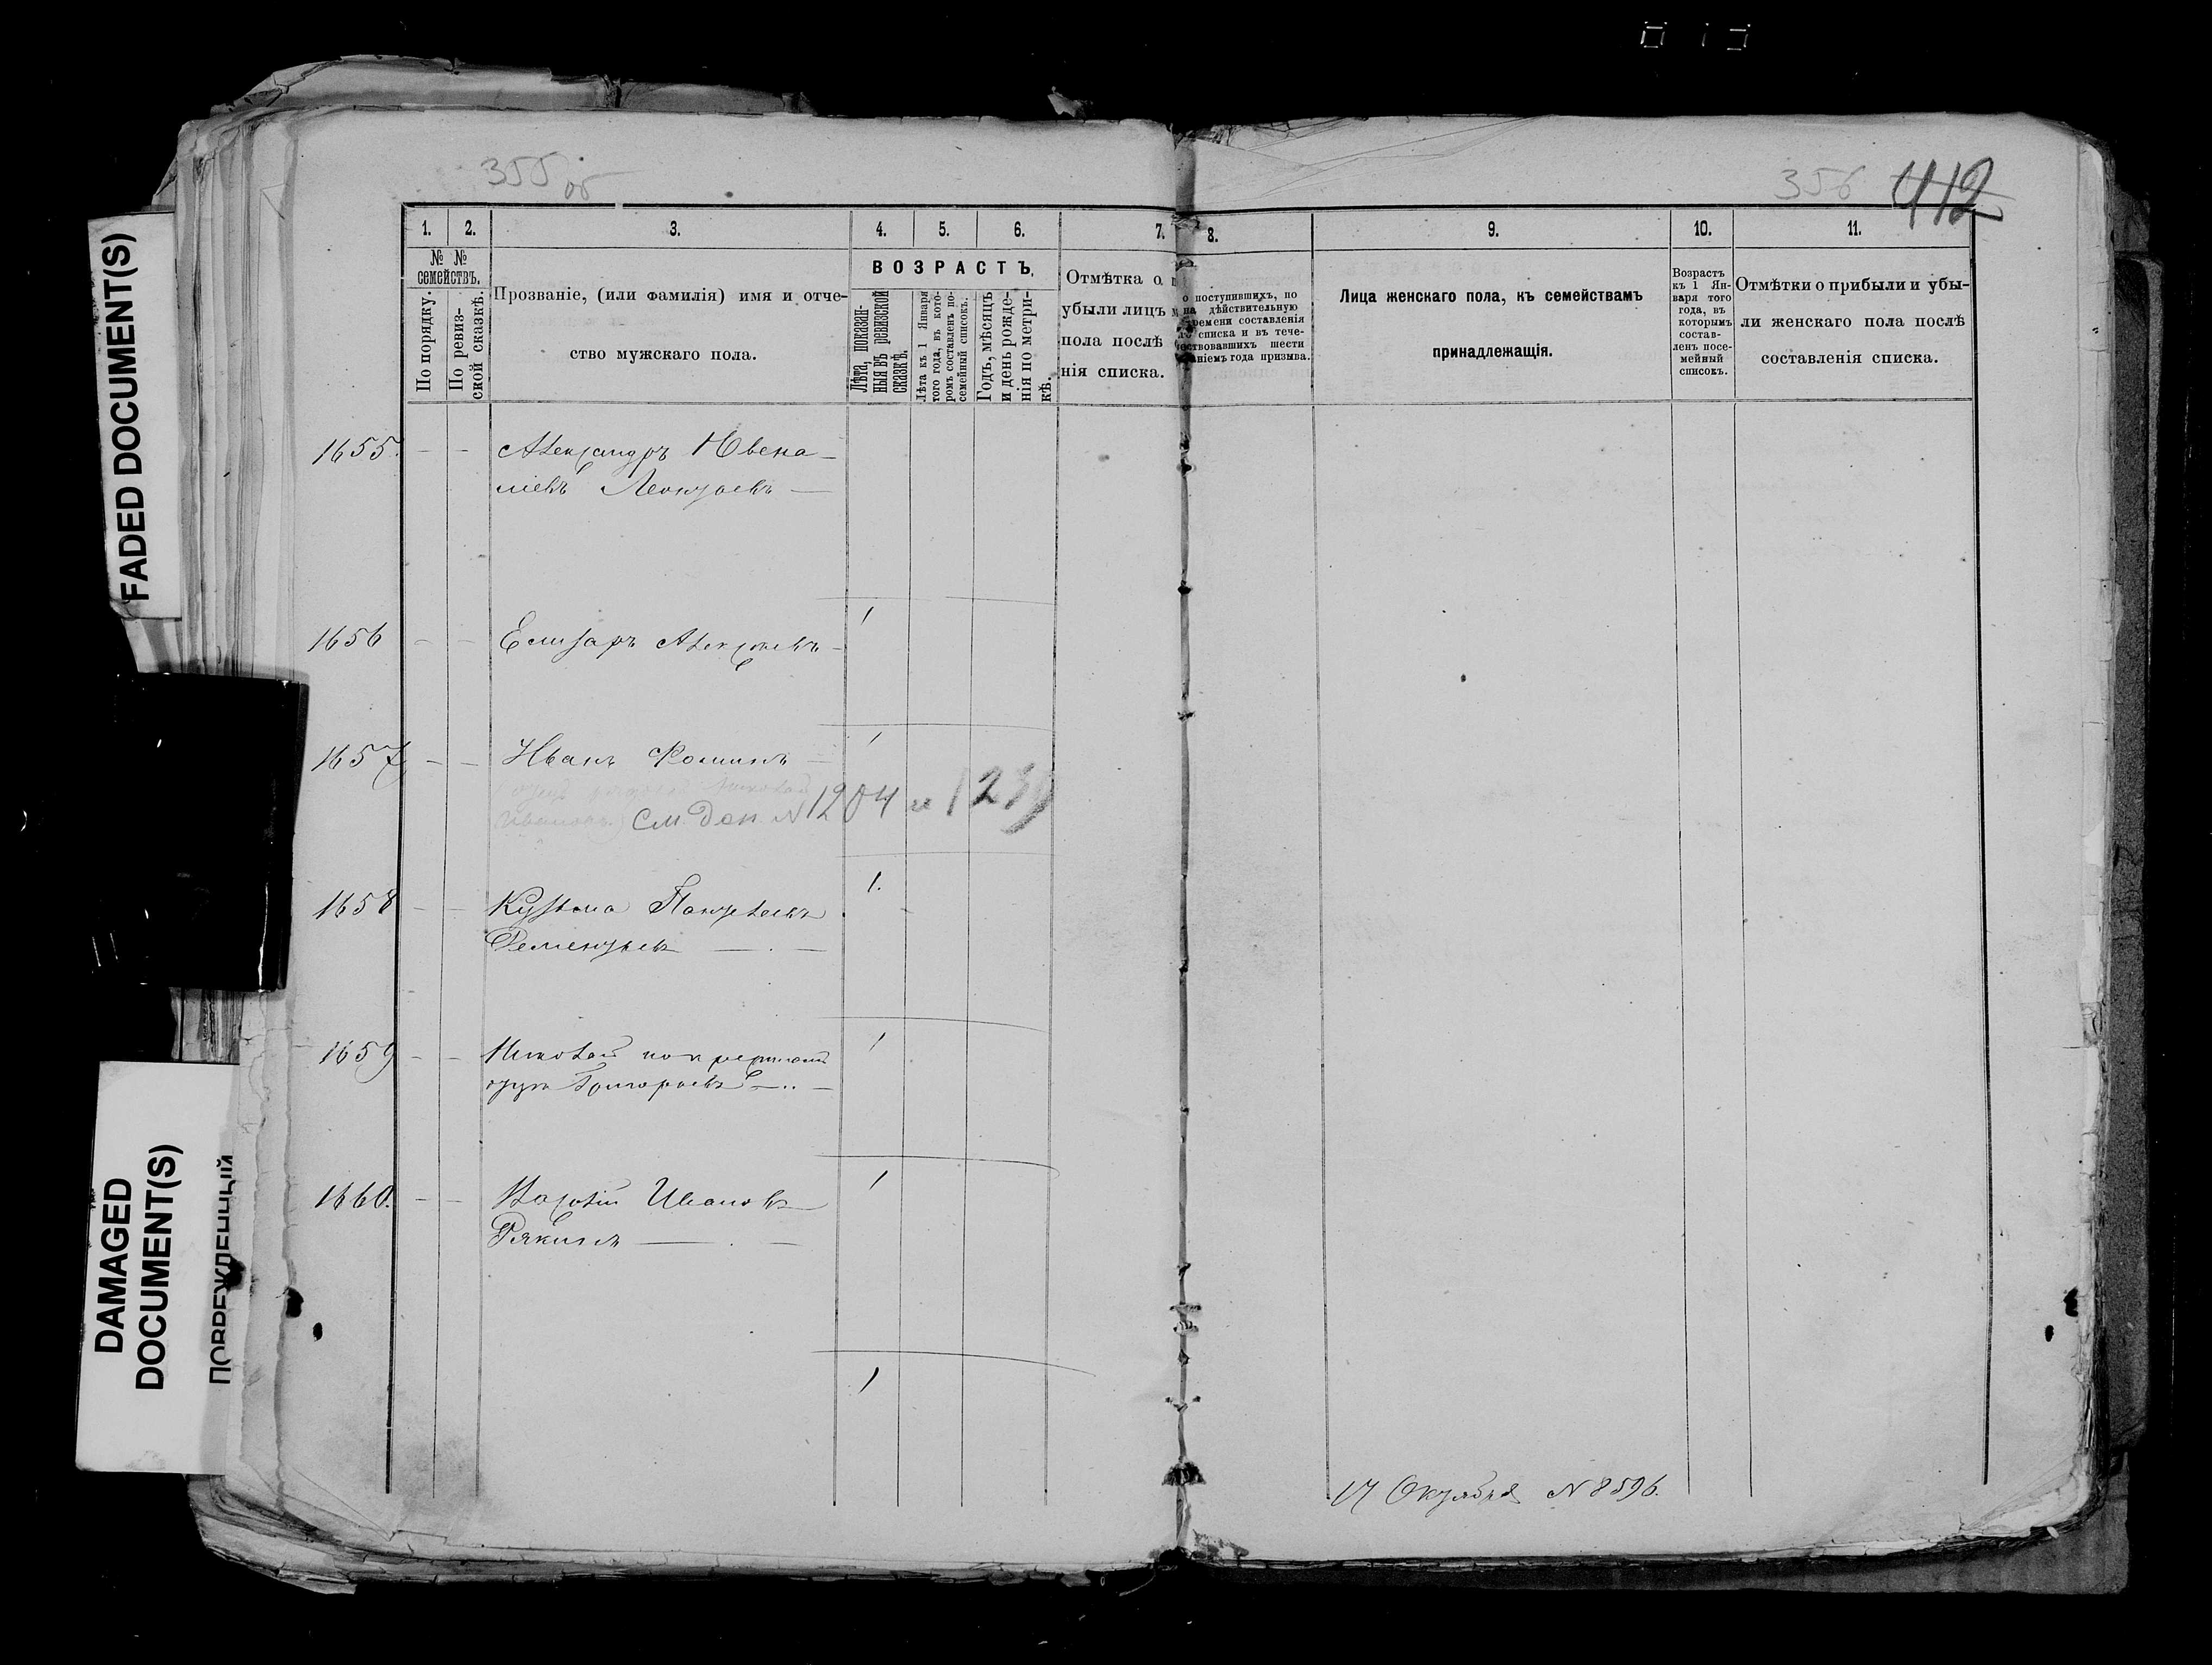 FADED DOCUMENT(S)
DAMAGED
DOCUMENT(S)
ПОВРЕЖДЕННЫЙ
355 об
356 412
1. 2. 3. 4. 5. 6. 7. 8. 9. 10. 11.
№ №
семействъ.
По порядку.
По ревиз-
ской сказкѣ.
Прозваніе, (или фамилія) имя и отче-
ство мужскаго пола.
ВОЗРАСТЪ.
Лѣта, показан-
ныя въ ревизской
сказкѣ.
Лѣта къ 1 Января
того года, въ кото-
ромъ составленъ по-
семейный списокъ.
Годъ, мѣсяцъ
и день рожде-
нія по метри-
кѣ.
Отмѣтка о
убыли лицъ
пола послѣ
нія списка.
о поступившихъ, по
на дѣйствительную
времени составленія
списка и въ тече-
шести
года призыва.
Лица женскаго пола, къ семействамъ
принадлежащія.
Возрастъ
къ 1 Ян-
варя того
года, въ
которымъ
состав-
ленъ посе-
мейный
списокъ.
Отмѣтки о прибыли и убы-
ли женскаго пола послѣ
составленія списка.
1655. - - Александръ Ювена-
ліевъ Леонтьевъ —
1
1656 - - Елизаръ Алексѣевъ -
1
1657 - - Иванъ Фоминъ -
Ивановъ) См. Доп. № 1204 и
1.
1658 - - Кузьма Пантелеевъ
Дементьевъ — . —
1
1659 - - Николай по крестному
отцу Григорьевъ —..—
1
1660. - - Ивановъ
— . —
1
17 Октября № 8596.